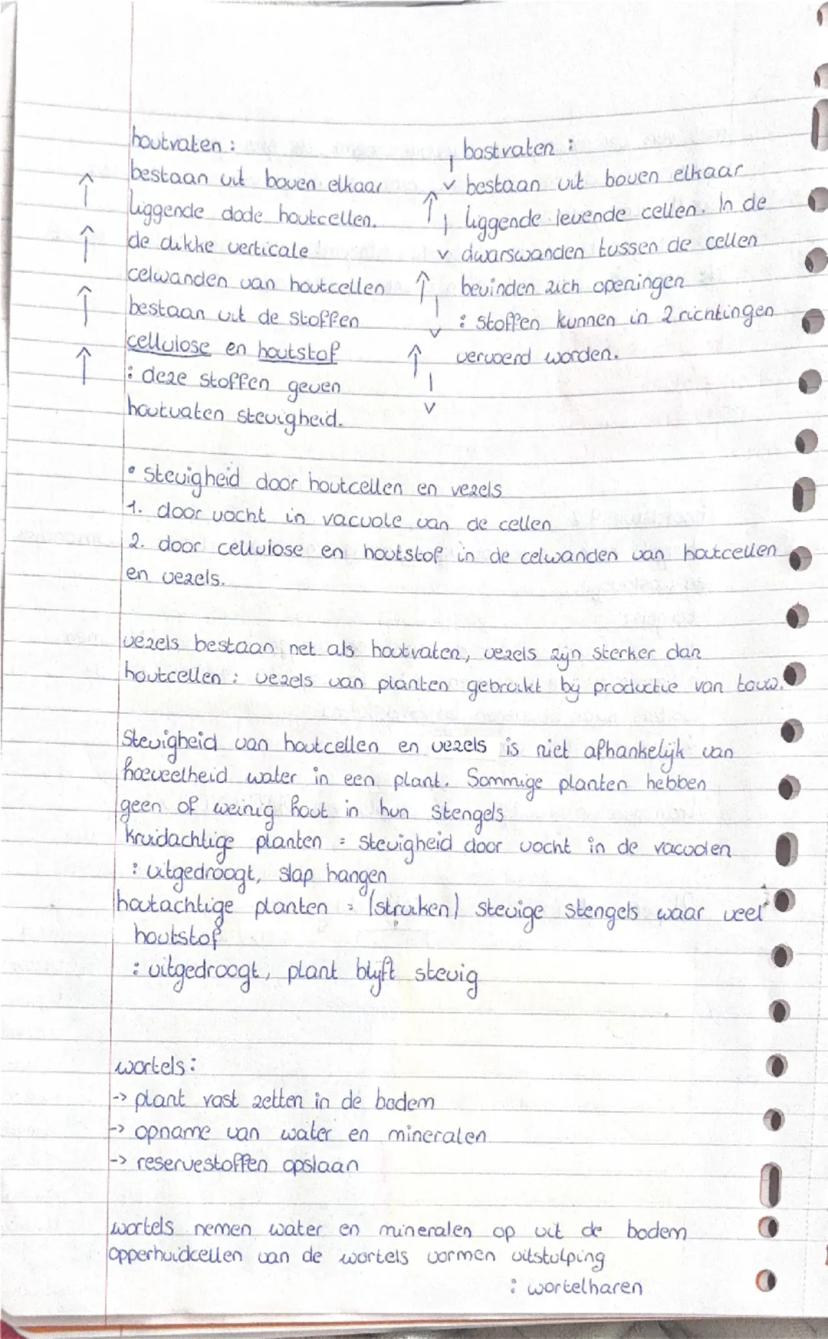 houtvaten :
bestaan uit boven elkaar
liggende dode houtcellen.
de dikke verticale
celwanden van houtcellen
bestaan uit de stoffen
cellulose en houtstof
: deze stoffen geven
houtvaten stevigheid.
bastvaten :
bestaan uit boven elkaar
liggende levende cellen. In de
dwarswanden tussen de cellen
bevinden zich openingen
: stoffen kunnen in 2 richtingen
vervoerd worden.
• stevigheid door houtcellen en vezels
1. door vocht in vacuole van de cellen
2. door cellulose en houtstof in de celwanden van houtcellen
en vezels.
vezels bestaan net als houtvaten, vezels zijn sterker dan
houtcellen : vezels van planten gebruikt bij productie van touw.
Stevigheid van houtcellen en vezels is niet afhankelijk van
hoeveelheid water in een plant. Sommige planten hebben
geen of weinig hout in hun stengels
kruidachtige planten = stevigheid door vocht in de vacuolen
: uitgedroogt, slap hangen
houtachtige planten = (struiken) stevige stengels waar veel
houtstof
: uitgedroogt, plant blijft stevig
wortels :
-> plant vast zetten in de bodem
-> opname van water en mineralen
-> reservestoffen opslaan
wortels nemen water en mineralen op uit de bodem
opperhuidcellen van de wortels vormen uitstulping
: wortelharen